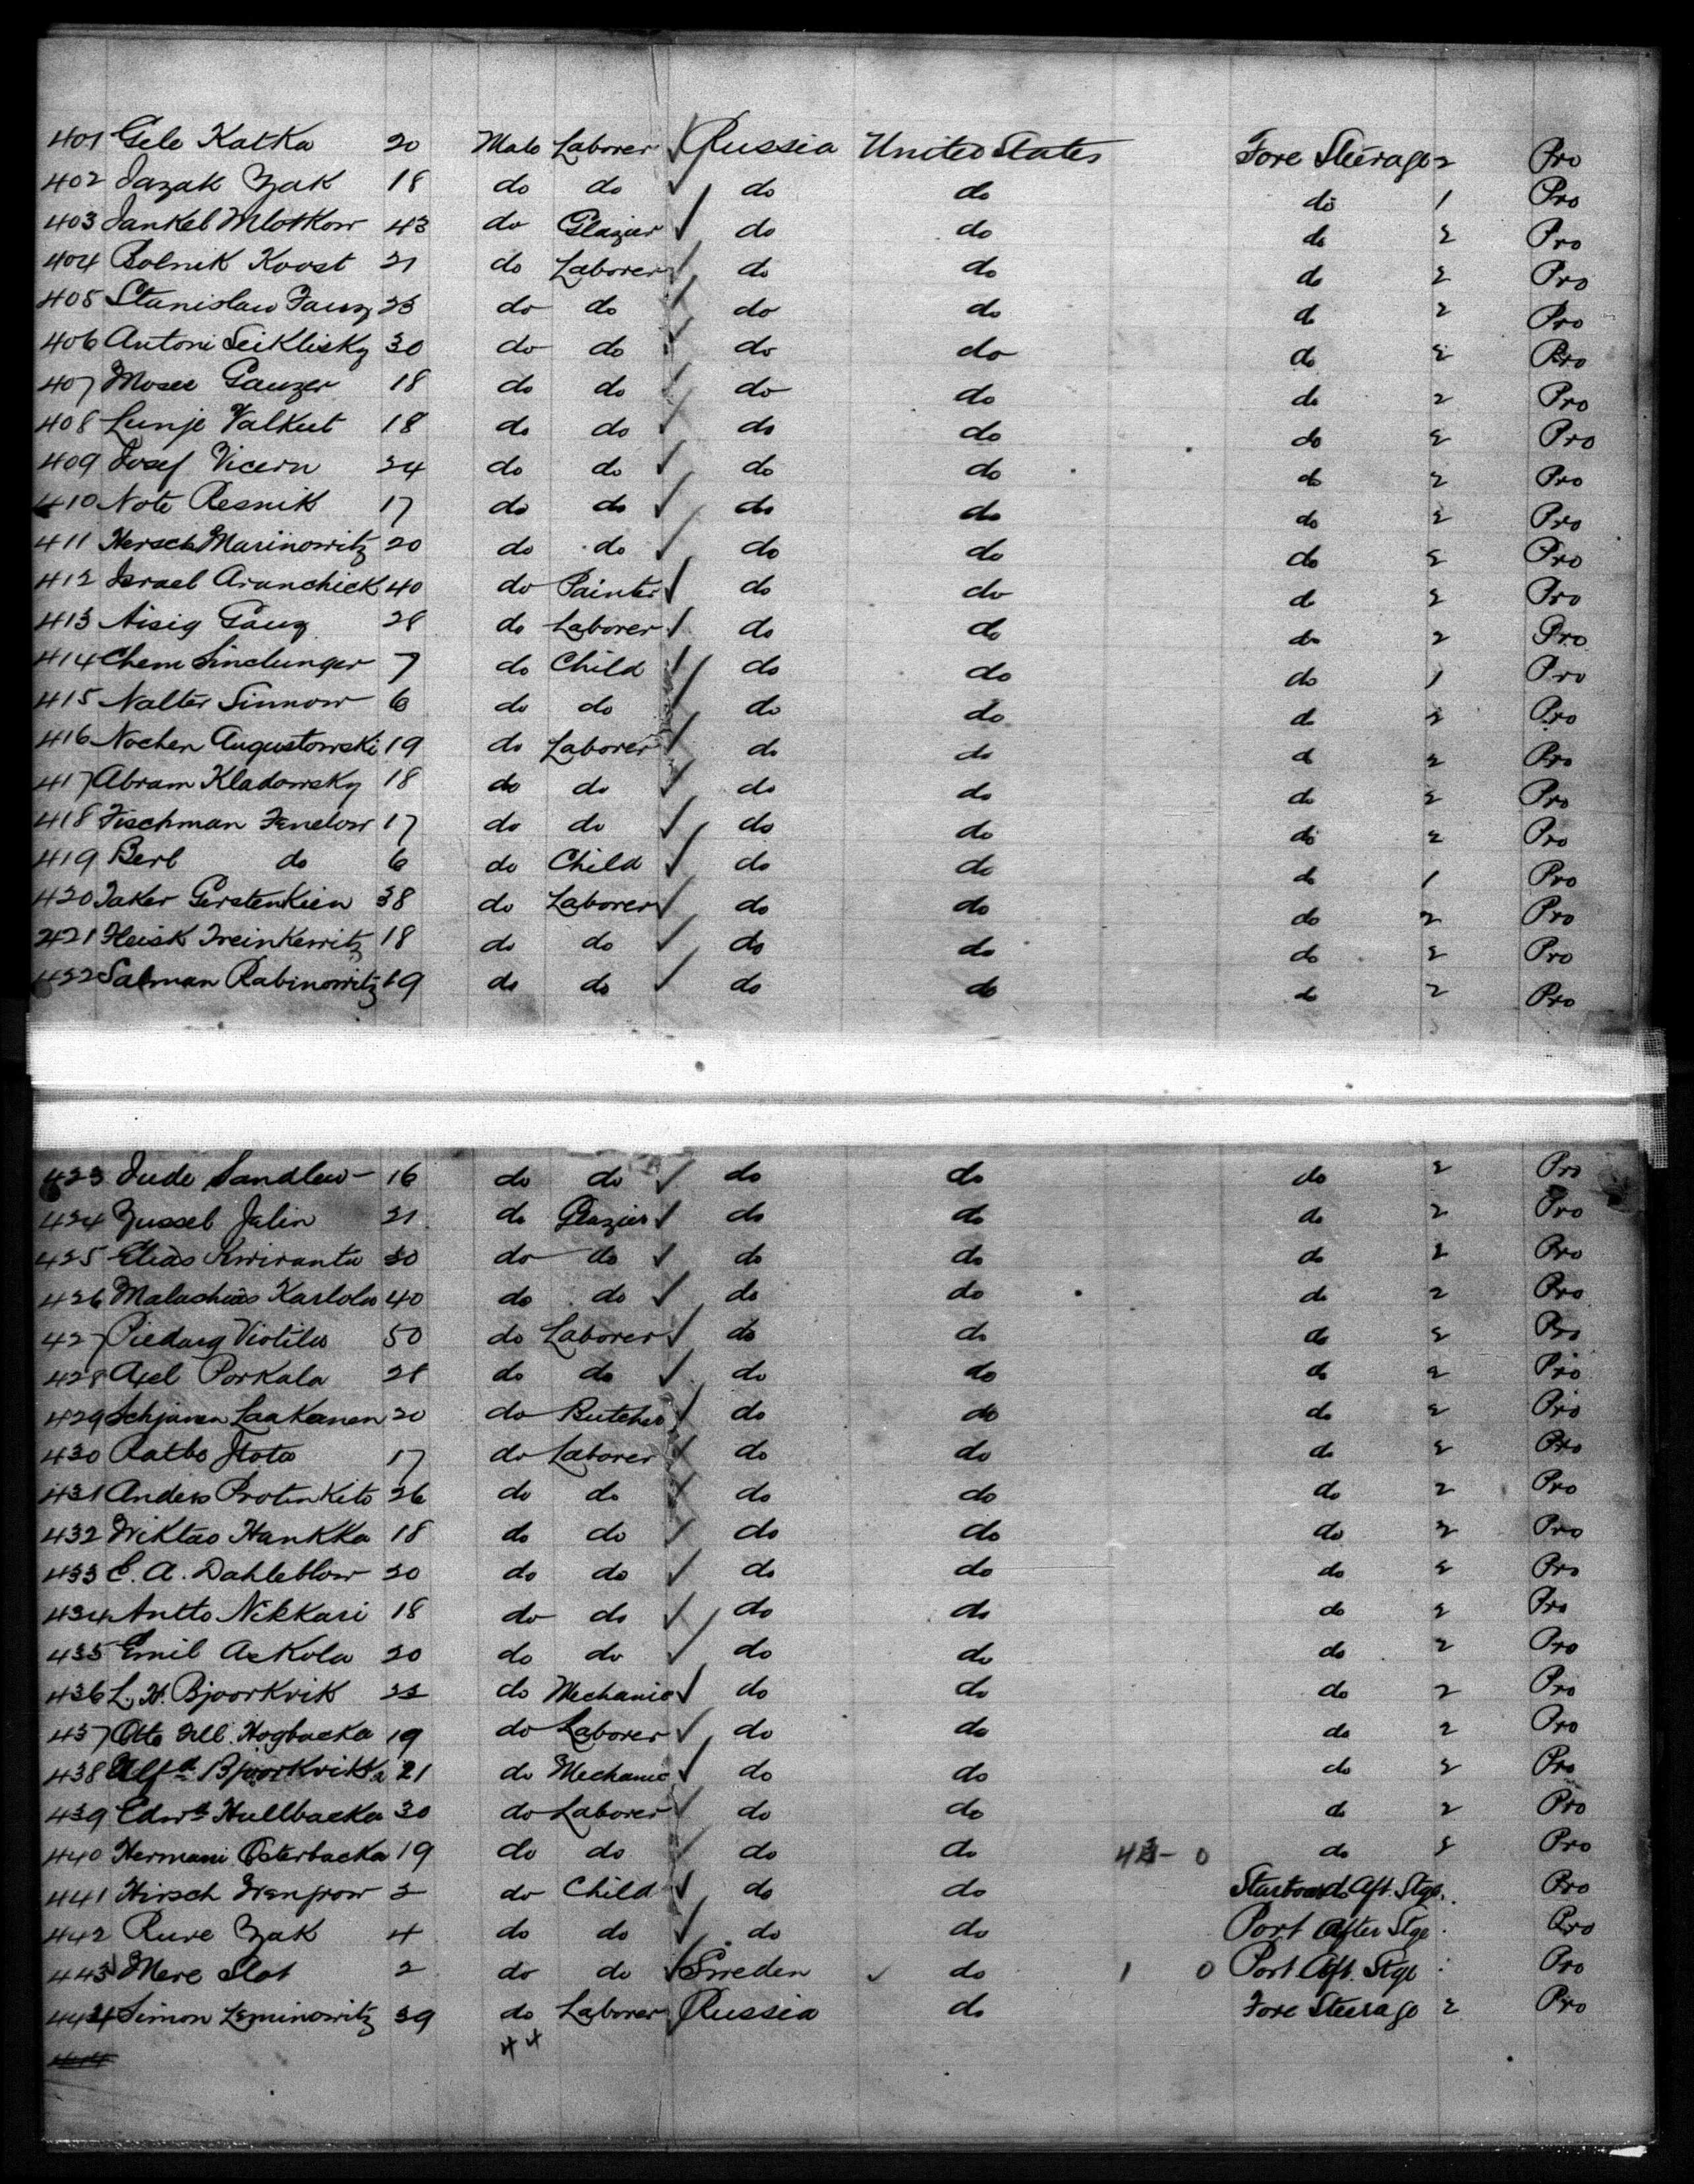 401 Gele Katka 20 Male Laborer ✓ Russia United States Fore Steerage 2 Pro
402 Jazak Zak 18 do do ✓ do do do 1 Pro
403 Jankel Mlotkow 43 do Glazier ✓ do do do 2 Pro
404 Bolnik Koost 21 do Laborer ✓ do do do 2 Pro
405 Stanislaw 23 do do ✓ do do do 2 Pro
406 Antoni Seiklisky 30 do do ✓ do do do 2 Pro
407 Moses Ganzer 18 do do ✓ do do do 2 Pro
408 Lunje Valkut 18 do do ✓ do do do 2 Pro
409 Josef Vicern 24 do do ✓ do do do 2 Pro
410 Note Resnik 17 do do ✓ do do do 2 Pro
411 Hersch Marinowitz 20 do do ✓ do do do 2 Pro
412 Israel Aranchick 40 do Painter ✓ do do do 2 Pro
413 Aisig Ganz 28 do Laborer ✓ do do do 2 Pro
414 Chem 7 do Child ✓ do do do 1 Pro
415 Nalter Sinnow 6 do do ✓ do do do 2 Pro
416 Nochen Augustowski 19 do Laborer ✓ do do do 2 Pro
417 Abram Kladowsky 18 do do ✓ do do do 2 Pro
418 Fischman Fenelow 17 do do ✓ do do do 2 Pro
419 Berl do 6 do Child ✓ do do do 1 Pro
420 Jaker Gerstenkien 38 do Laborer ✓ do do do 2 Pro
421 Heisk Treinkewitz 18 do do ✓ do do do 2 Pro
422 Salman Rabinowitz 19 do do ✓ do do do 2 Pro
423 Jude Sandlew 16 do do ✓ do do do 2 Pro
424 Zussel Jalin 21 do Glazier ✓ do do do 2 Pro
425 Elias Kwiranta 30 do do ✓ do do do 2 Pro
426 Malachias Karlola 40 do do ✓ do do do 2 Pro
427 Violila 50 do Laborer ✓ do do do 2 Pro
428 Axel Porkala 28 do do ✓ do do do 2 Pro
429 Laakanen 20 do Butcher ✓ do do do 2 Pro
430 Ratbo 17 do Laborer ✓ do do do 2 Pro
431 Anders Protinkito 26 do do ✓ do do do 2 Pro
432 Wiktas Hankka 18 do do ✓ do do do 2 Pro
433 E. A. Dahleblow 20 do do ✓ do do do 2 Pro
434 Antto Nikkari 18 do do ✓ do do do 2 Pro
435 Emil Askola 20 do do ✓ do do do 2 Pro
436 L. H. Bjoorkvik 23 do Mechanic ✓ do do do 2 Pro
437 Otto Hogbacka 19 do Laborer ✓ do do do 2 Pro
438 Alfd Bjoorkvikka 21 do Mechanic ✓ do do do 2 Pro
439 Edwd Hullbacka 30 do Laborer ✓ do do do 2 Pro
440 Hermani Osterbacka 19 do do ✓ do do 43 - 0 do 2 Pro
441 Hirsch 3 do Child ✓ do do Starboard Aft. Stge. Pro
442 Rure Zak 4 do do ✓ do do Port After Stge Pro
443 Mere Slot 2 do do ✓ Sweden ✓ do 1 0 Port Aft. Stge Pro
444 Simon Leminowitz 39 do Laborer Russia do Fore Steerage 2 Pro
44